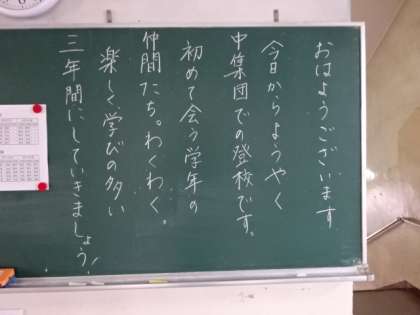 おはようございます
今日からようやく
中集団での登校です。
初めて会う学年の
仲間たち。わくわく。
楽しく、学びの多い
三年間にしていきましょう!